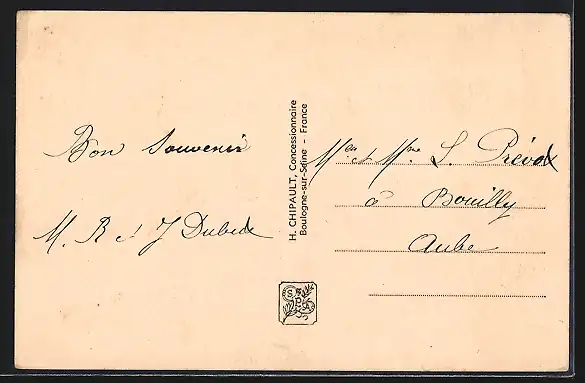 Bon Souvenir
M. R et J Dubede
H. CHIPAULT, Concessionnaire
Boulogne-sur-Seine - France
Mr et Mme L. Prévot
à Bouilly
Aube